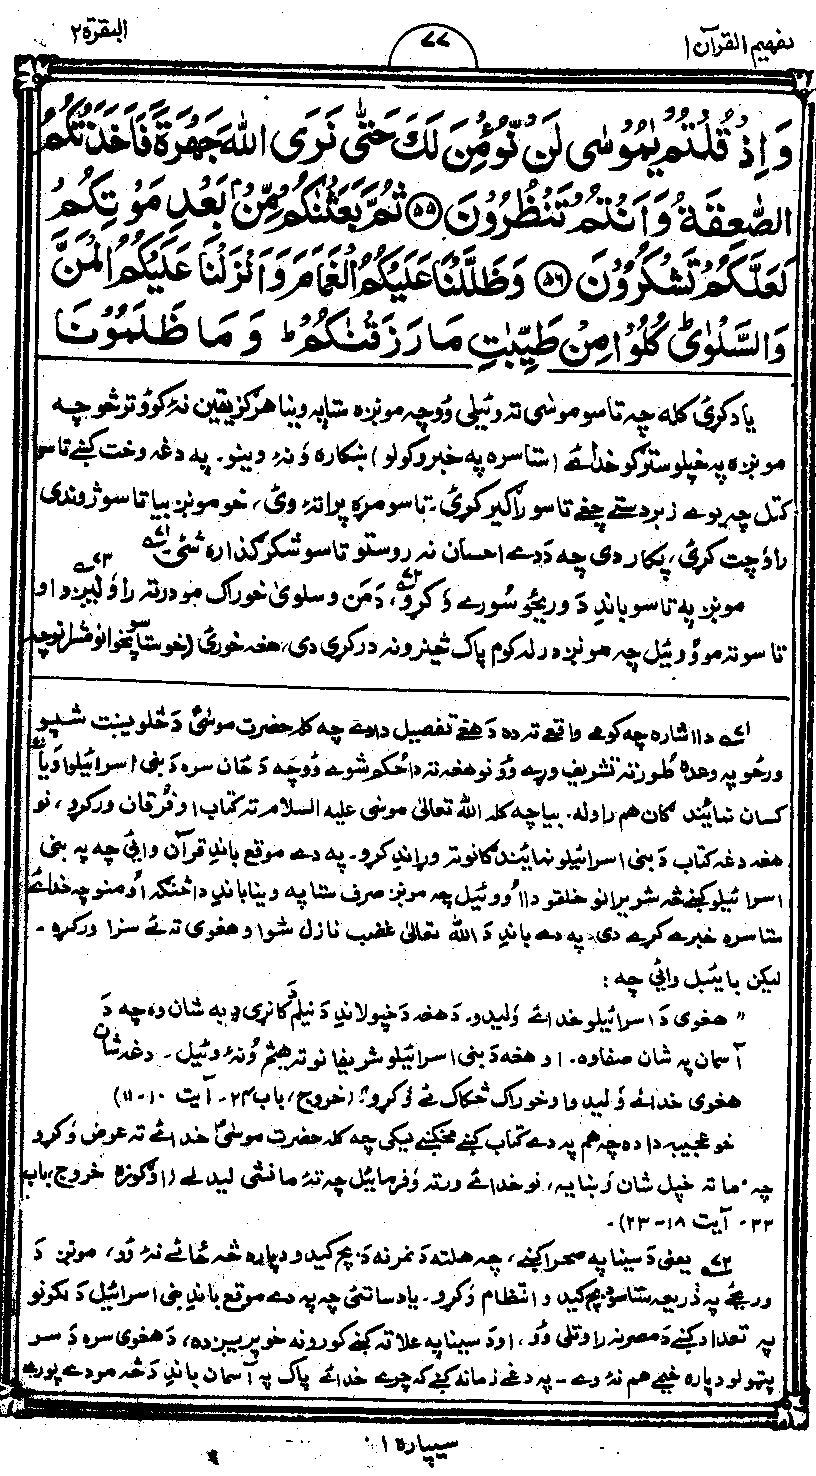 تفهيم القرآن ١
٧٧
البقرة ٢
وَاِذْ قُلْتُمْ يٰمُوْسٰى لَنْ نُّؤْمِنَ لَكَ حَتّٰى نَرَى اللّٰهَ جَهْرَةً فَاَخَذَتْكُمُ
الصّٰعِقَةُ وَاَنْتُمْ تَنْظُرُوْنَ ﴿۵۵﴾ ثُمَّ بَعَثْنٰكُمْ مِّنْۢ بَعْدِ مَوْتِكُمْ
لَعَلَّكُمْ تَشْكُرُوْنَ ﴿۵۶﴾ وَظَلَّلْنَا عَلَيْكُمُ الْغَمَامَ وَاَنْزَلْنَا عَلَيْكُمُ الْمَنَّ
وَالسَّلْوٰى ؕ كُلُوْا مِنْ طَيِّبٰتِ مَا رَزَقْنٰكُمْ ؕ وَمَا ظَلَمُوْنَا
ياد كړئ كله چه تاسو موسى ته وئيلي وو چه مونږه ستا په وينا هرګز يقين نۀ كوؤ ترڅو چه
مونږه په خپلو سترګو خدائے (ستا سره په خبرو كولو) ښكاره ؤ نۀ وينو. په دغه وخت كښے تاسو
كتل چه يوے زبردستے چغے تاسو راګير كړئ. تاسو مړه پراتۀ وئ، خو مونږ بيا تاسو ژوندى
راؤچت كړئ، پكار دى چه ددے احسان نه روستو تاسو شكر ګذاره شئ ٧١
مونږ په تاسو باندِ د وريځو سورے ؤكړو ٧٢، د من و سلوىٰ خوراك مو درته راؤليږدا ٧٣ او
تاسو ته مو ؤوئيل چه مونږه درله كوم پاك څيزونه دركړى دى، هغه خورئ (خو ستاسو پخوانو مشرانو چه
٧١ دا اشاره چه كومے واقعے ته ده د هغے تفصيل دادے چه كله حضرت موسىٰؑ د څلويښت شپو
ورځو په وعده طور ته تشريف وړے وؤ نو هغه ته دا حكم شوے وؤ چه د ځان سره د بنى اسرائيلو اويا
كسان نمائيندګان هم راوله. بيا چه كله الله تعالىٰ موسى عليه السلام ته كتاب او فرقان وركړو، نو
هغه دغه كتاب د بنى اسرائيلو نمائيندګانو ته وړاندِ كړو. په دے موقع باندِ قرآن وائي چه په بنى
اسرائيلو كښے څه شريرانو خلقو دا ؤوئيل چه مونږ صرف ستا په وينا باندِ دا څنګه اومنو چه خدائے
ستا سره خبرے كړے دى. په دے باندِ د الله تعالىٰ غضب نازل شو او هغوى ته ئے سزا وركړه۔
ليكن بائيبل وائي چه :
" هغوى د اسرائيلو خدائے ؤليدو. د هغه د خپو لاندِ د نيلم د كانړى په شان وه چه د
آسمان په شان صفا وه. او هغه د بنى اسرائيلو شريفانو ته هيڅ ؤنۀ وئيل۔ دغه شان
هغوى خدائے ؤليد او خوراك څكاك ئے ؤكړو" (خروج، باب ٢٤ـ آيت ١٠-١١)
خو عجيبه دا ده چه هم په دے كتاب كښے مخكښے ليكى چه كله حضرت موسىٰؑ خدائے ته عرض ؤكړو
چه ما ته خپل شان ؤښايه، نو خدائے ورته ؤفرمائيل چه تۀ ما نشى ليدلے (اوګوره خروج، باب
٣٣ـ آيت ١٨-٢٣)۔
٧٢ يعنى د سينا په صحرا كښے، چه هلته د نمر نه د بچ كيدو دپاره څه ځائے نۀ وُو، مونږ د
وريځے په ذريعه ستاسو د بچ كيدو انتظام ؤكړو۔ ياد ساتئ چه په دے موقع باندِ بنى اسرائيل د لكونو
په تعداد كښے د مصر نه راوتلى وُو، او د سينا په علاقه كښے كورونه خو پريږده، د هغوى سره د سر
پټولو دپاره خيمے هم نۀ وے۔ په دغے زمانه كښے كه چرے خدائے پاك په آسمان باندِ د څه مودے پورے
سيپاره ١